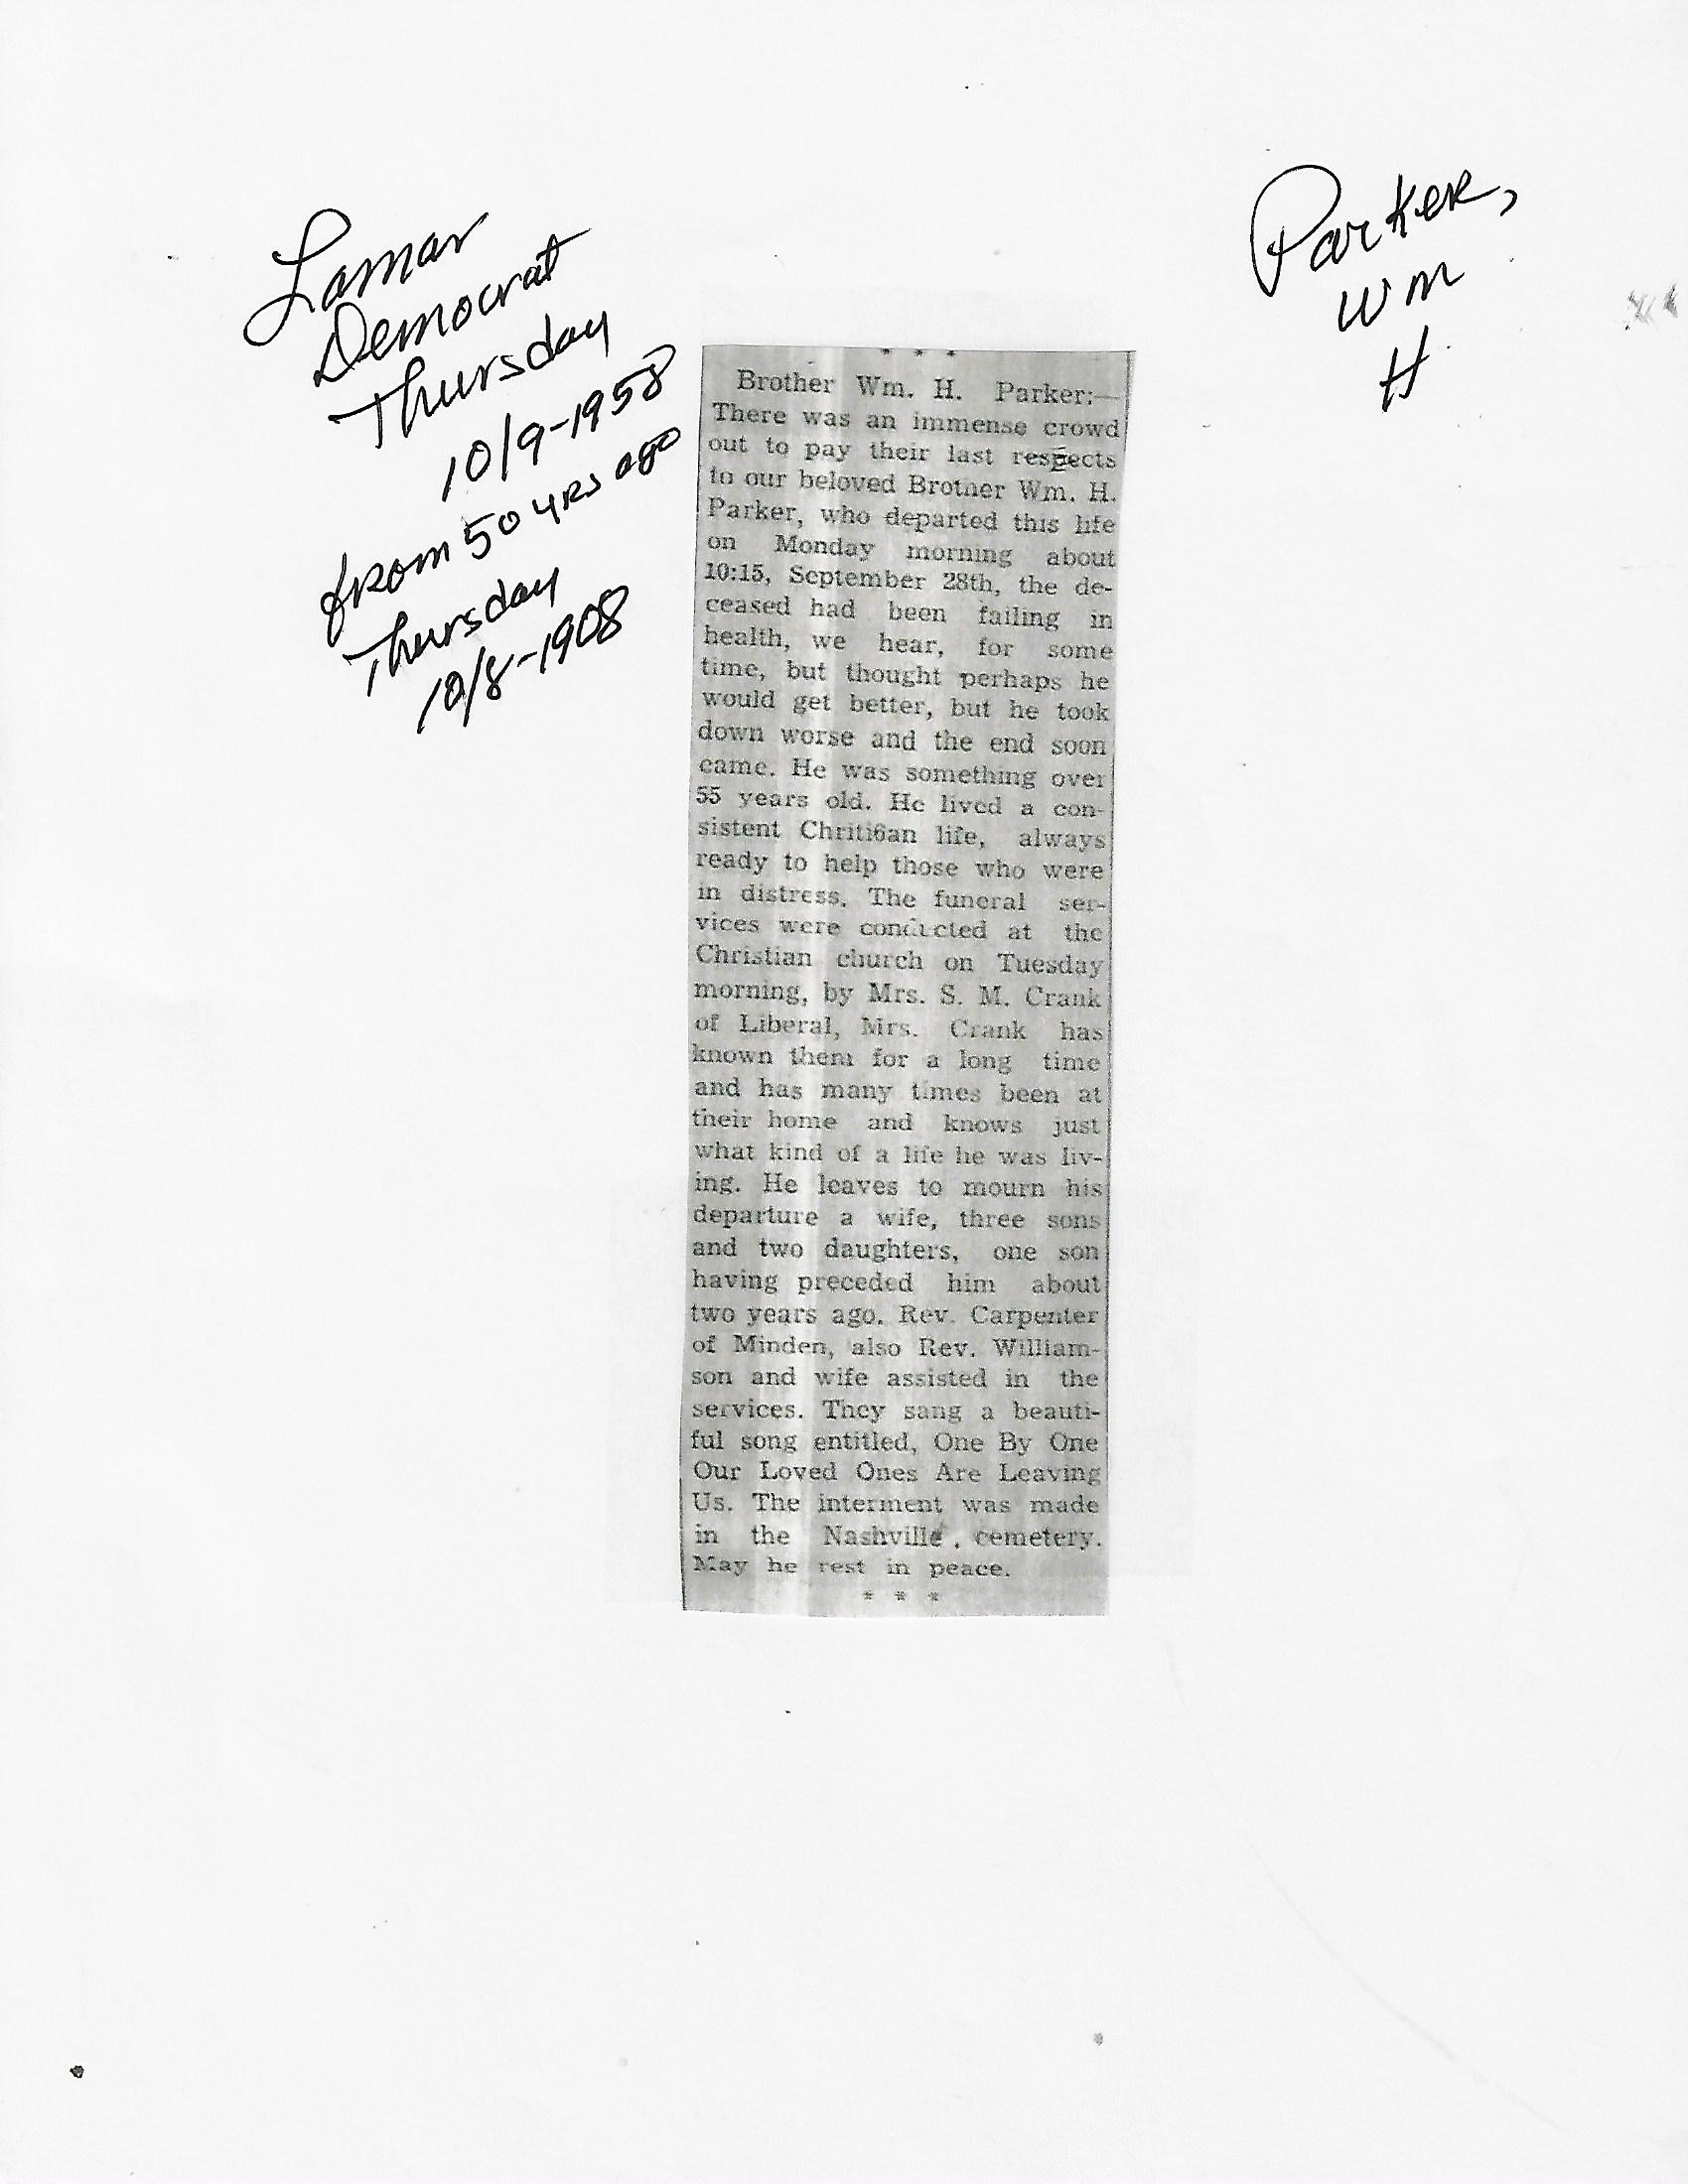 Lamar
Democrat
Thursday
10/9-1958
from 50 yrs ago
Thursday
10/8-1908
Parker,
Wm
H.
* * *
Brother Wm. H. Parker:—
There was an immense crowd
out to pay their last respects
to our beloved Brother Wm. H.
Parker, who departed this life
on Monday morning about
10:15, September 28th, the de-
ceased had been failing in
health, we hear, for some
time, but thought perhaps he
would get better, but he took
down worse and the end soon
came. He was something over
55 years old. He lived a con-
sistent Chriti6an life, always
ready to help those who were
in distress. The funeral ser-
vices were conducted at the
Christian church on Tuesday
morning, by Mrs. S. M. Crank
of Liberal, Mrs. Crank has
known them for a long time
and has many times been at
their home and knows just
what kind of a life he was liv-
ing. He leaves to mourn his
departure a wife, three sons
and two daughters, one son
having preceded him about
two years ago. Rev. Carpenter
of Minden, also Rev. William-
son and wife assisted in the
services. They sang a beauti-
ful song entitled, One By One
Our Loved Ones Are Leaving
Us. The interment was made
in the Nashville cemetery.
May he rest in peace.
* * *